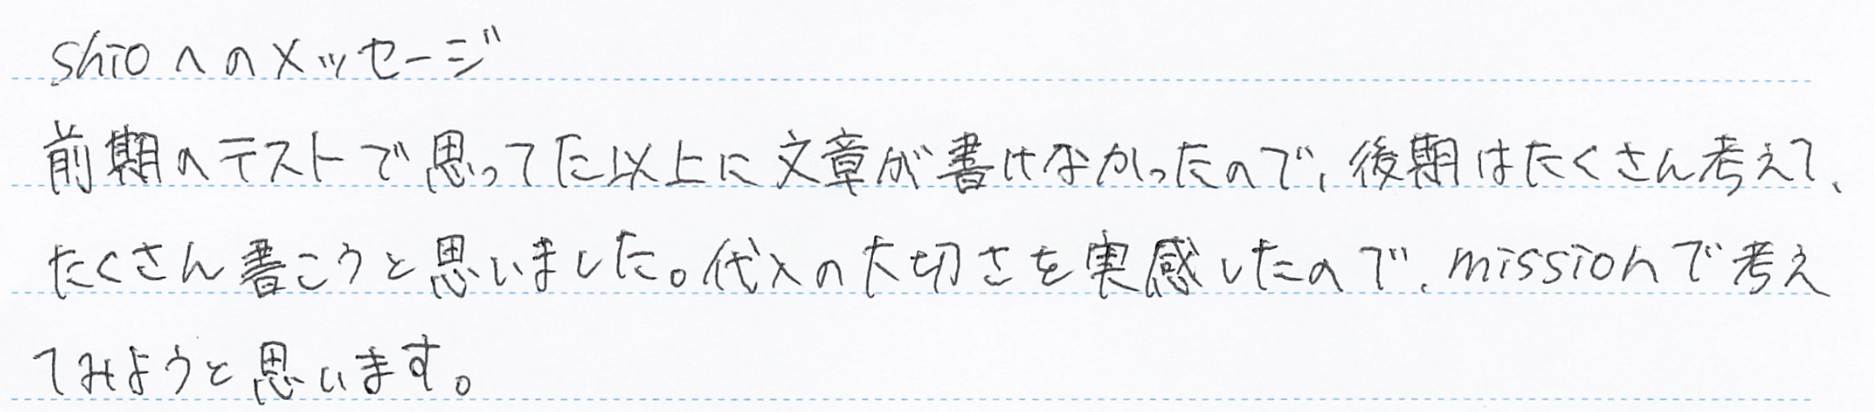 shioへのメッセージ
前期のテストで思ってた以上に文章が書けなかったので、後期はたくさん考えて、
たくさん書こうと思いました。代入の大切さを実感したので、missionで考え
てみようと思います。